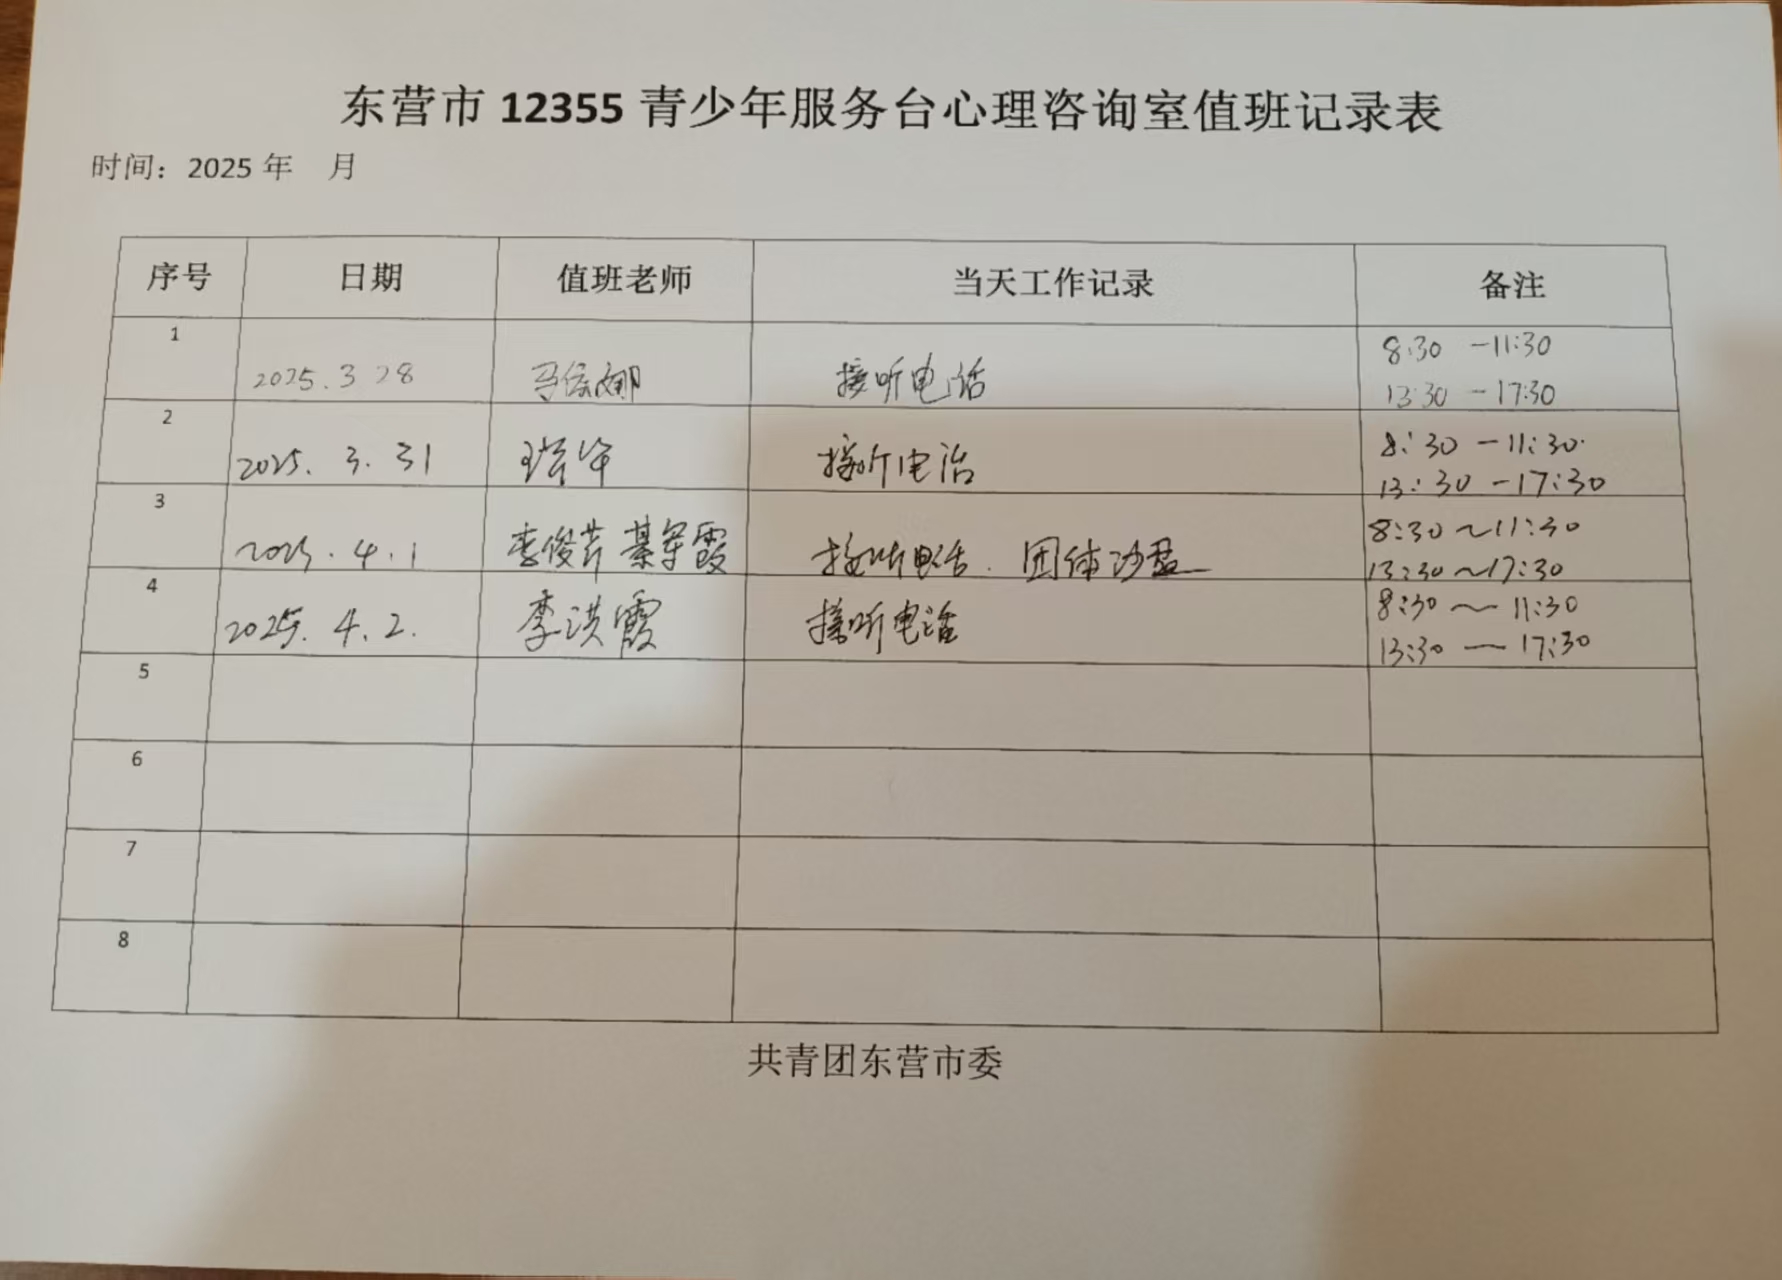 东营市 12355 青少年服务台心理咨询室值班记录表
时间：2025 年 月
序号 日期 值班老师 当天工作记录 备注
1 2025.3 28 接听电话 8:30 -11:30
13:30 -17:30
2 2025.3.31 接听电话 8:30 -11:30
13:30 -17:30
3 2025.4.1 李俊芹 綦军霞 接听电话. 团体沙盘 8:30 ~11:30
13:30 ~17:30
4 2025.4.2. 李洪霞 接听电话 8:30 — 11:30
13:30 — 17:30
5
6
7
8
共青团东营市委